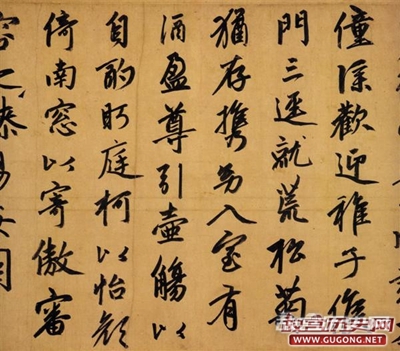 僮僕歡迎稚子候
門三逕就荒松菊
猶存携幼入室有
酒盈尊引壺觴以
自酌眄庭柯以怡顏
倚南窓以寄傲審
容之膝易安園
故宫历史网
WWW.GUGONG.NET